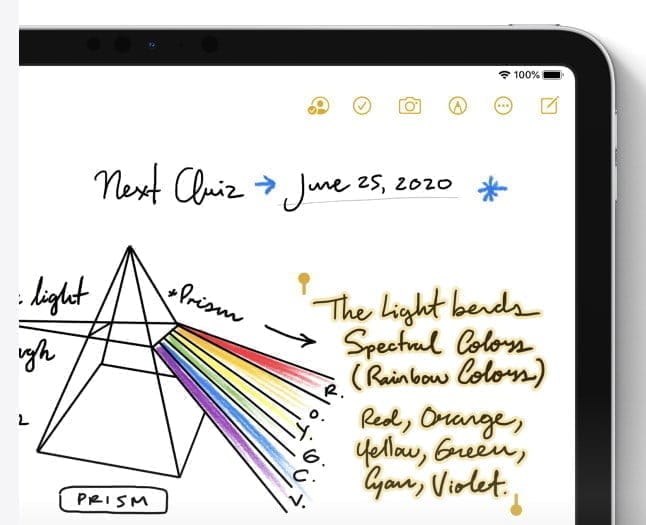 100%
Next Quiz → June 25, 2020 *
light
*Prism
The Light bends
Spectral Colors
(Rainbow Colors)
Red, Orange,
Yellow, Green,
Cyan, Violet.
R.
O.
Y.
G.
C.
V.
PRISM